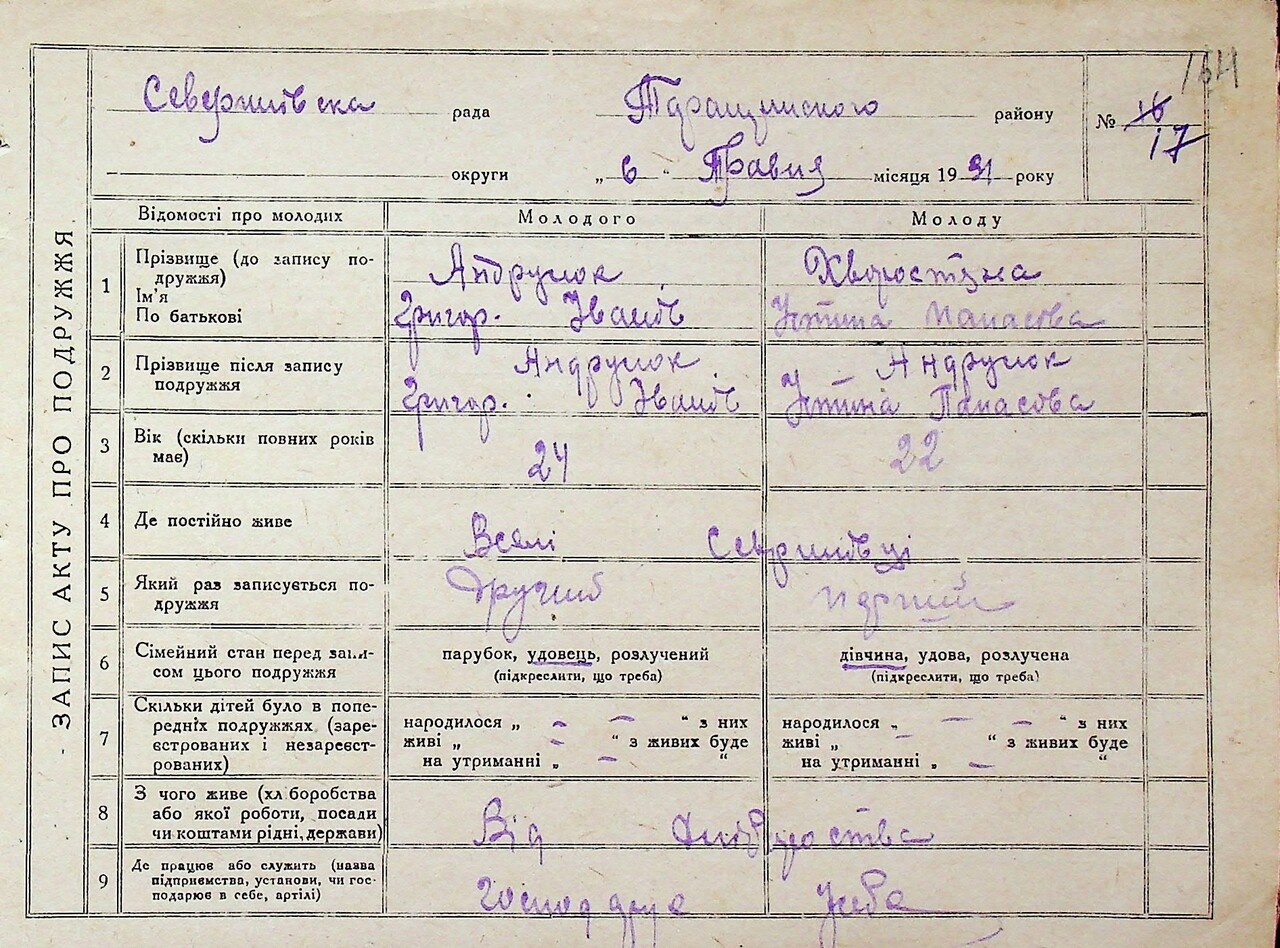 164
Северинівска рада Таращинского району № 16
17
округи „ 6 “ Травня місяця 1931 року
ЗАПИС АКТУ ПРО ПОДРУЖЖЯ
Відомості про молодих Молодого Молоду
1 Прізвище (до запису по- Андрущок Хворостяна
дружжя)
Ім'я
По батькові Григор. Іванів Устина Панасова
2 Прізвище після запису Андрущок Андрущок
подружжя Григор. Іванів Устина Панасова
3 Вік (скільки повних років 24 22
має)
4 Де постійно живе Вселі Севринівці
5 Який раз записується по- Другий перший
дружжя
6 Сімейний стан перед запи- парубок, удовець, розлучений дівчина, удова, розлучена
сом цього подружжя (підкреслити, що треба) (підкреслити, що треба)
7 Скільки дітей було в попе- народилося „ — — “ з них народилося „ — — “ з них
редніх подружжях (заре- живі „ — “ з живих буде живі „ — “ з живих буде
єстрованих і незареєст- на утриманні „ — “ на утриманні „ — “
рованих)
8 З чого живе (хліборобства
або якої роботи, посади
чи коштами рідні, держави) Від
9 Де працює або служить (назва
підприємства, установи, чи гос-
подарює в себе, артілі) Господарує усебе